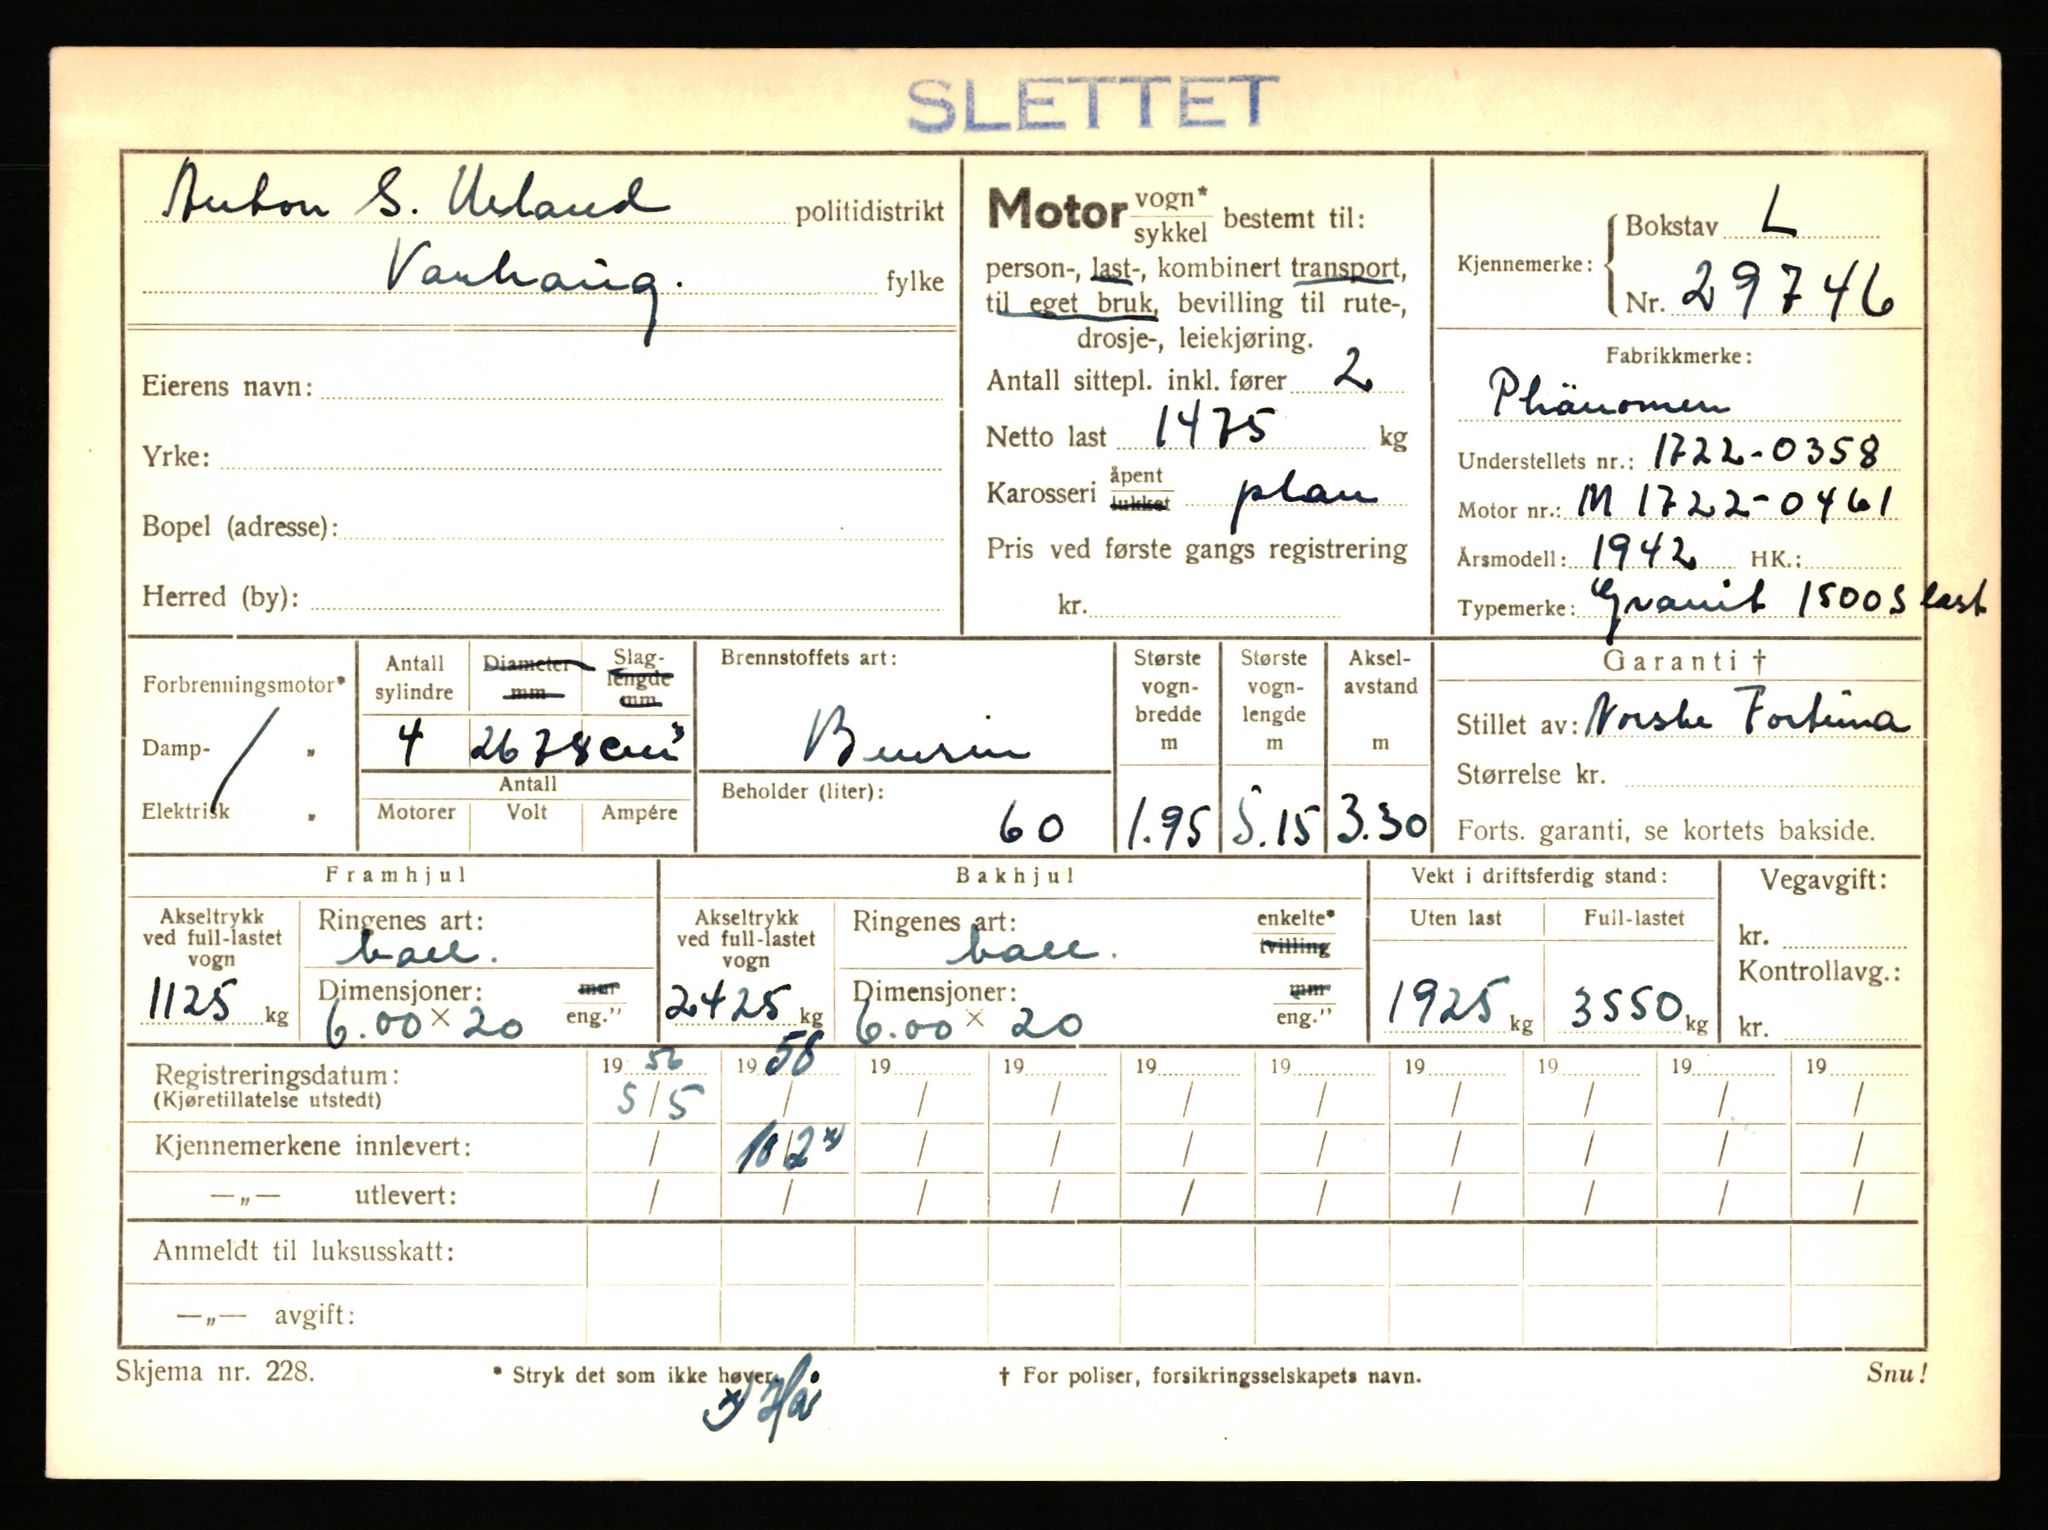 SLETTET
Anton S. Ueland politidistrikt
Varhaug. fylke
Eierens navn:
Yrke:
Bopel (adresse):
Herred (by):
Motor vogn* sykkel bestemt til:
person-, last-, kombinert transport,
til eget bruk, bevilling til rute-,
drosje-, leiekjøring.
Antall sittepl. inkl. fører 2
Netto last 1475 kg
Karosseri åpent lukket plan
Pris ved første gangs registrering
kr.
Kjennemerke: Bokstav L
Nr. 29746
Fabrikkmerke:
Phänomen
Understellets nr.: 1722-0358
Motor nr.: M 1722-0461
Årsmodell: 1942 HK.:
Typemerke: Granit 1500 S last
Forbrenningsmotor*
Damp- „
Elektrisk „
Antall sylindre
Diameter mm
Slag-lengde mm
4 2678 cm³
Antall
Motorer Volt Ampére
Brennstoffets art:
Bensin
Beholder (liter):
60
Største vogn-bredde m
1.95
Største vogn-lengde m
5.15
Aksel-avstand m
3.30
Garanti †
Stillet av: Norske Fortuna
Størrelse kr.
Forts. garanti, se kortets bakside.
Framhjul
Akseltrykk ved full-lastet vogn
1125 kg
Ringenes art:
ball.
Dimensjoner: mm eng."
6.00 x 20
Bakhjul
Akseltrykk ved full-lastet vogn
2425 kg
Ringenes art: enkelte* tvilling
ball.
Dimensjoner: mm eng."
6.00 x 20
Vekt i driftsferdig stand:
Uten last Full-lastet
1925 kg 3550 kg
Vegavgift:
kr.
Kontrollavg.:
kr.
Registreringsdatum: 19 56 19 58 19 19 19 19 19 19 19 19
(Kjøretillatelse utstedt) 5/5 / / / / / / / / /
Kjennemerkene innlevert: / 10/2 x) / / / / / / / /
—„— utlevert: / / / / / / / / / /
Anmeldt til luksusskatt:
—„— avgift:
Skjema nr. 228. * Stryk det som ikke høver. † For poliser, forsikringsselskapets navn. Snu!
x) Hå